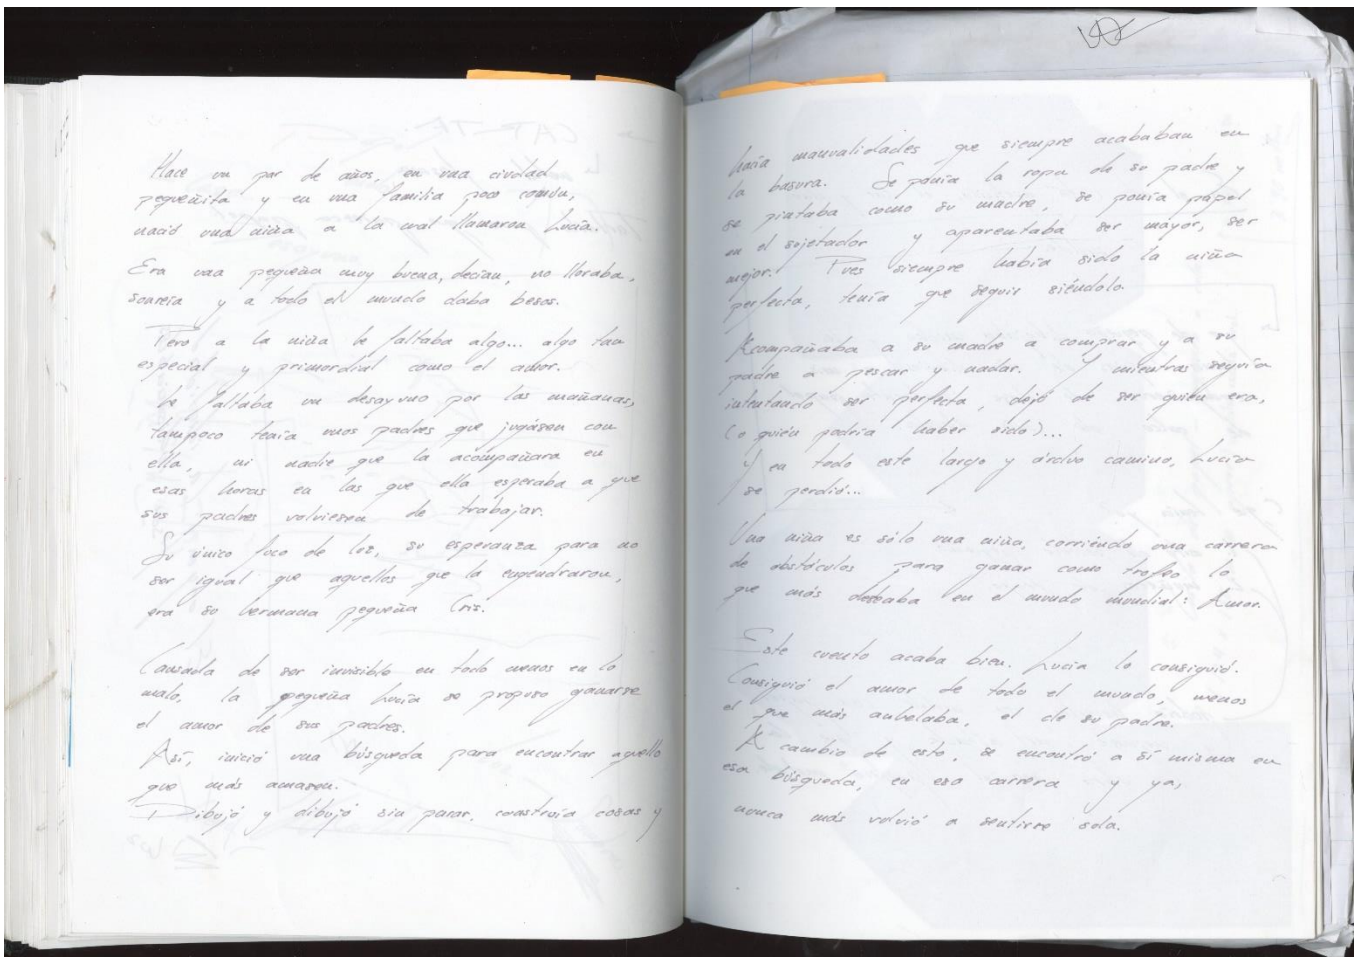 Hace un par de años, en una ciudad
pequeñita y en una familia poco común,
nació una niña a la cual llamaron Lucía.
Era una pequeña muy buena, decían, no lloraba,
sonreía y a todo el mundo daba besos.
Pero a la niña le faltaba algo... algo tan
especial y primordial como el amor.
Le faltaba un desayuno por las mañanas,
tampoco tenía unos padres que jugásen con
ella, ni nadie que la acompañara en
esas horas en las que ella esperaba a que
sus padres volviesen de trabajar.
Su único foco de luz, su esperanza para no
ser igual que aquellos que la engendraron,
era su hermana pequeña Cris.
Cansada de ser invisible en todo menos en lo
malo, la pequeña Lucía se propuso ganarse
el amor de sus padres.
Así, inició una búsqueda para encontrar aquello
que más amasen.
Dibujó y dibujó sin parar, construía cosas y
hacía manualidades que siempre acababan en
la basura. Se ponía la ropa de su padre y
se pintaba como su madre, se ponía papel
en el sujetador y aparentaba ser mayor, ser
mejor. Pues siempre había sido la niña
perfecta, tenía que seguir siéndolo.
Acompañaba a su madre a comprar y a su
padre a pescar y nadar. Y mientras seguía
intentando ser perfecta, dejó de ser quién era,
(o quién podría haber sido)...
Y en todo este largo y árduo camino, Lucía
se perdió...
Una niña es sólo una niña, corriendo una carrera
de obstáculos para ganar como trofeo lo
que más deseaba en el mundo mundial: Amor.
Este cuento acaba bien. Lucía lo consiguió.
Consiguió el amor de todo el mundo, menos
el que más anhelaba, el de su padre.
A cambio de esto, se encontró a sí misma en
esa búsqueda, en eso carrera y ya,
nunca más volvió a sentirse sola.